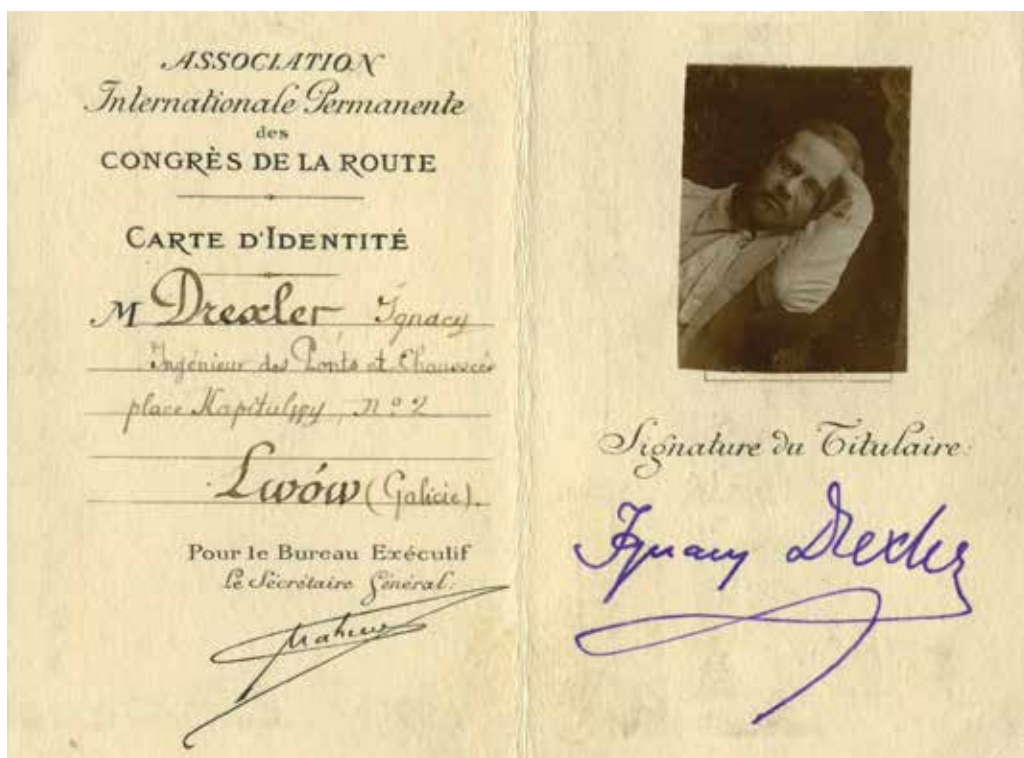 ASSOCIATION
Internationale Permanente
des
CONGRÈS DE LA ROUTE
CARTE D'IDENTITÉ
M Drexler Ignacy
Ingénieur des Ponts et Chaussées
place Kapitulny, nº 2
Lwów (Galicie).
Pour le Bureau Exécutif
Le Secrétaire Général:
Signature du Titulaire:
Ignacy Drexler